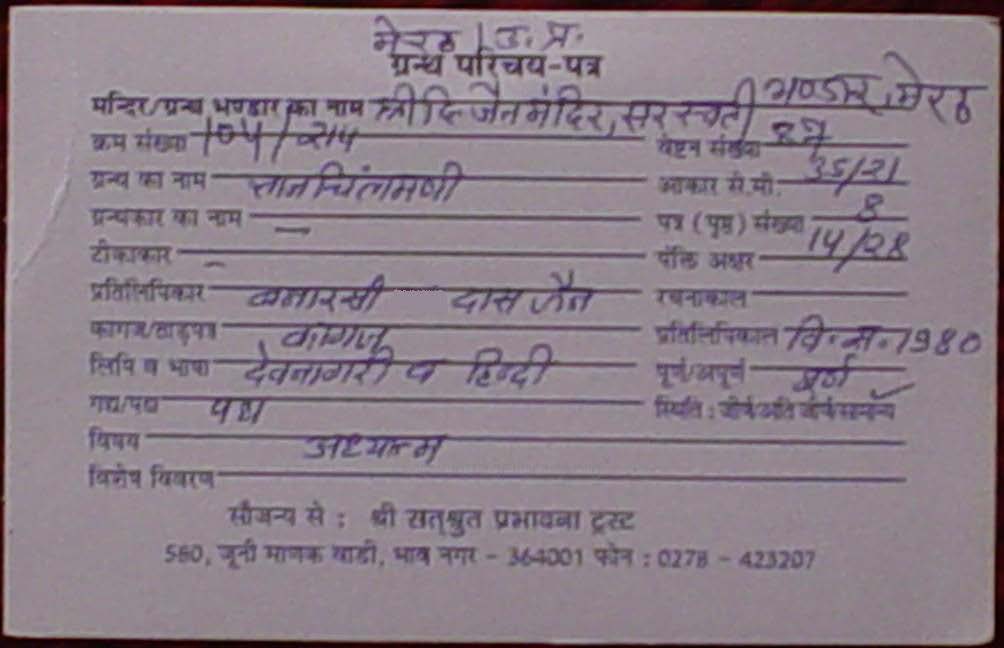 मेरठ / उ. प्र.
ग्रन्थ परिचय-पत्र
मन्दिर/ग्रन्थ भण्डार का नाम श्री दि जैन मंदिर, सरस्वती भण्डार, मेरठ
क्रम संख्या 104/ वेष्टन संख्या
ग्रन्थ का नाम ज्ञानचिंतामणी आकार से.मी. 35/21
ग्रन्थकार का नाम — पत्र (पृष्ठ) संख्या 8
टीकाकार — पंक्ति अक्षर 14/28
प्रतिलिपिकार बनारसी दास जैन रचनाकाल
कागज/ताड़पत्र कागज प्रतिलिपिकाल वि. स. 1980
लिपि व भाषा देवनागरी व हिन्दी पूर्ण/अपूर्ण पूर्ण
गद्य/पद्य पद्य स्थिति : जीर्ण/अति जीर्ण/सामान्य ✓
विषय अध्यात्म
विशेष विवरण
सौजन्य से : श्री सत्श्रुत प्रभावना ट्रस्ट
580, जूनी माणक वाडी, भाव नगर - 364001 फोन : 0278 - 423207